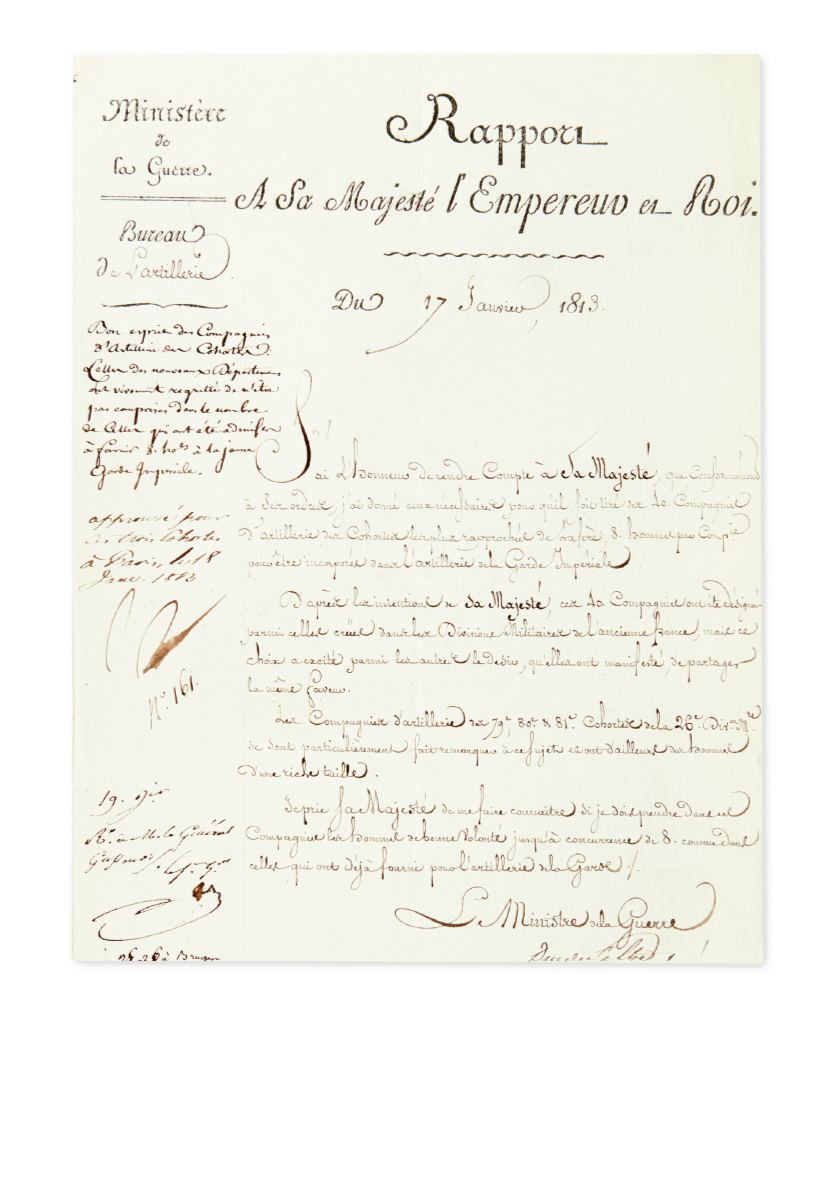 Ministère
de
la Guerre.
Bureau
de L'artillerie.
Bon esprit des Compagnies
d'Artillerie des Cohortes.
Celles des nouveaux Départemens
ont vivement regretté de n'être
pas comprises dans le nombre
de Celles qui ont été admises
à fournir 8. hom. à la jeune
Garde Impériale.
approuvé pour
les trois Cohortes
à Paris, le 18
Janv. 1813
N° 161.
19. Jer
Rt. à Mr. le Général
26-26 à Bruxer
Rapport
A Sa Majesté l'Empereur et Roi.
Du 17 Janvier 1813.
J'ai L'honneur de rendre Compte à Sa Majesté, que Conformément
à Ses ordres, j'ai donné ceux nécessaires pour qu'il soit tiré des 40. Compagnies
d'artillerie des Cohortes les plus rapprochées de Lafère 8. hommes par Compie
pour être incorporés dans l'artillerie de la Garde Impériale.
D'après les intentions de Sa Majesté, ces 40. Compagnies ont été désignées
parmi celles créées dans les Divisions Militaires de l'ancienne france, mais ce
choix a excité parmi les autres le desir, qu'elles ont manifesté, de partager
la même faveur.
Les Compagnies d'artillerie des 79e, 80e & 81e. Cohortes de la 26e. Divon Mre
se sont particulièrement fait remarquer à ce sujet et ont d'ailleurs des hommes
d'une riche taille.
Je prie Sa Majesté de me faire connaître si je dois prendre dans ces
Compagnies les hommes de bonne volonté jusqu'à concurrence de 8. comme dans
celles qui ont déjà fourni pour l'artillerie de la Garde ./.
Le Ministre de la Guerre
Duc de Feltre